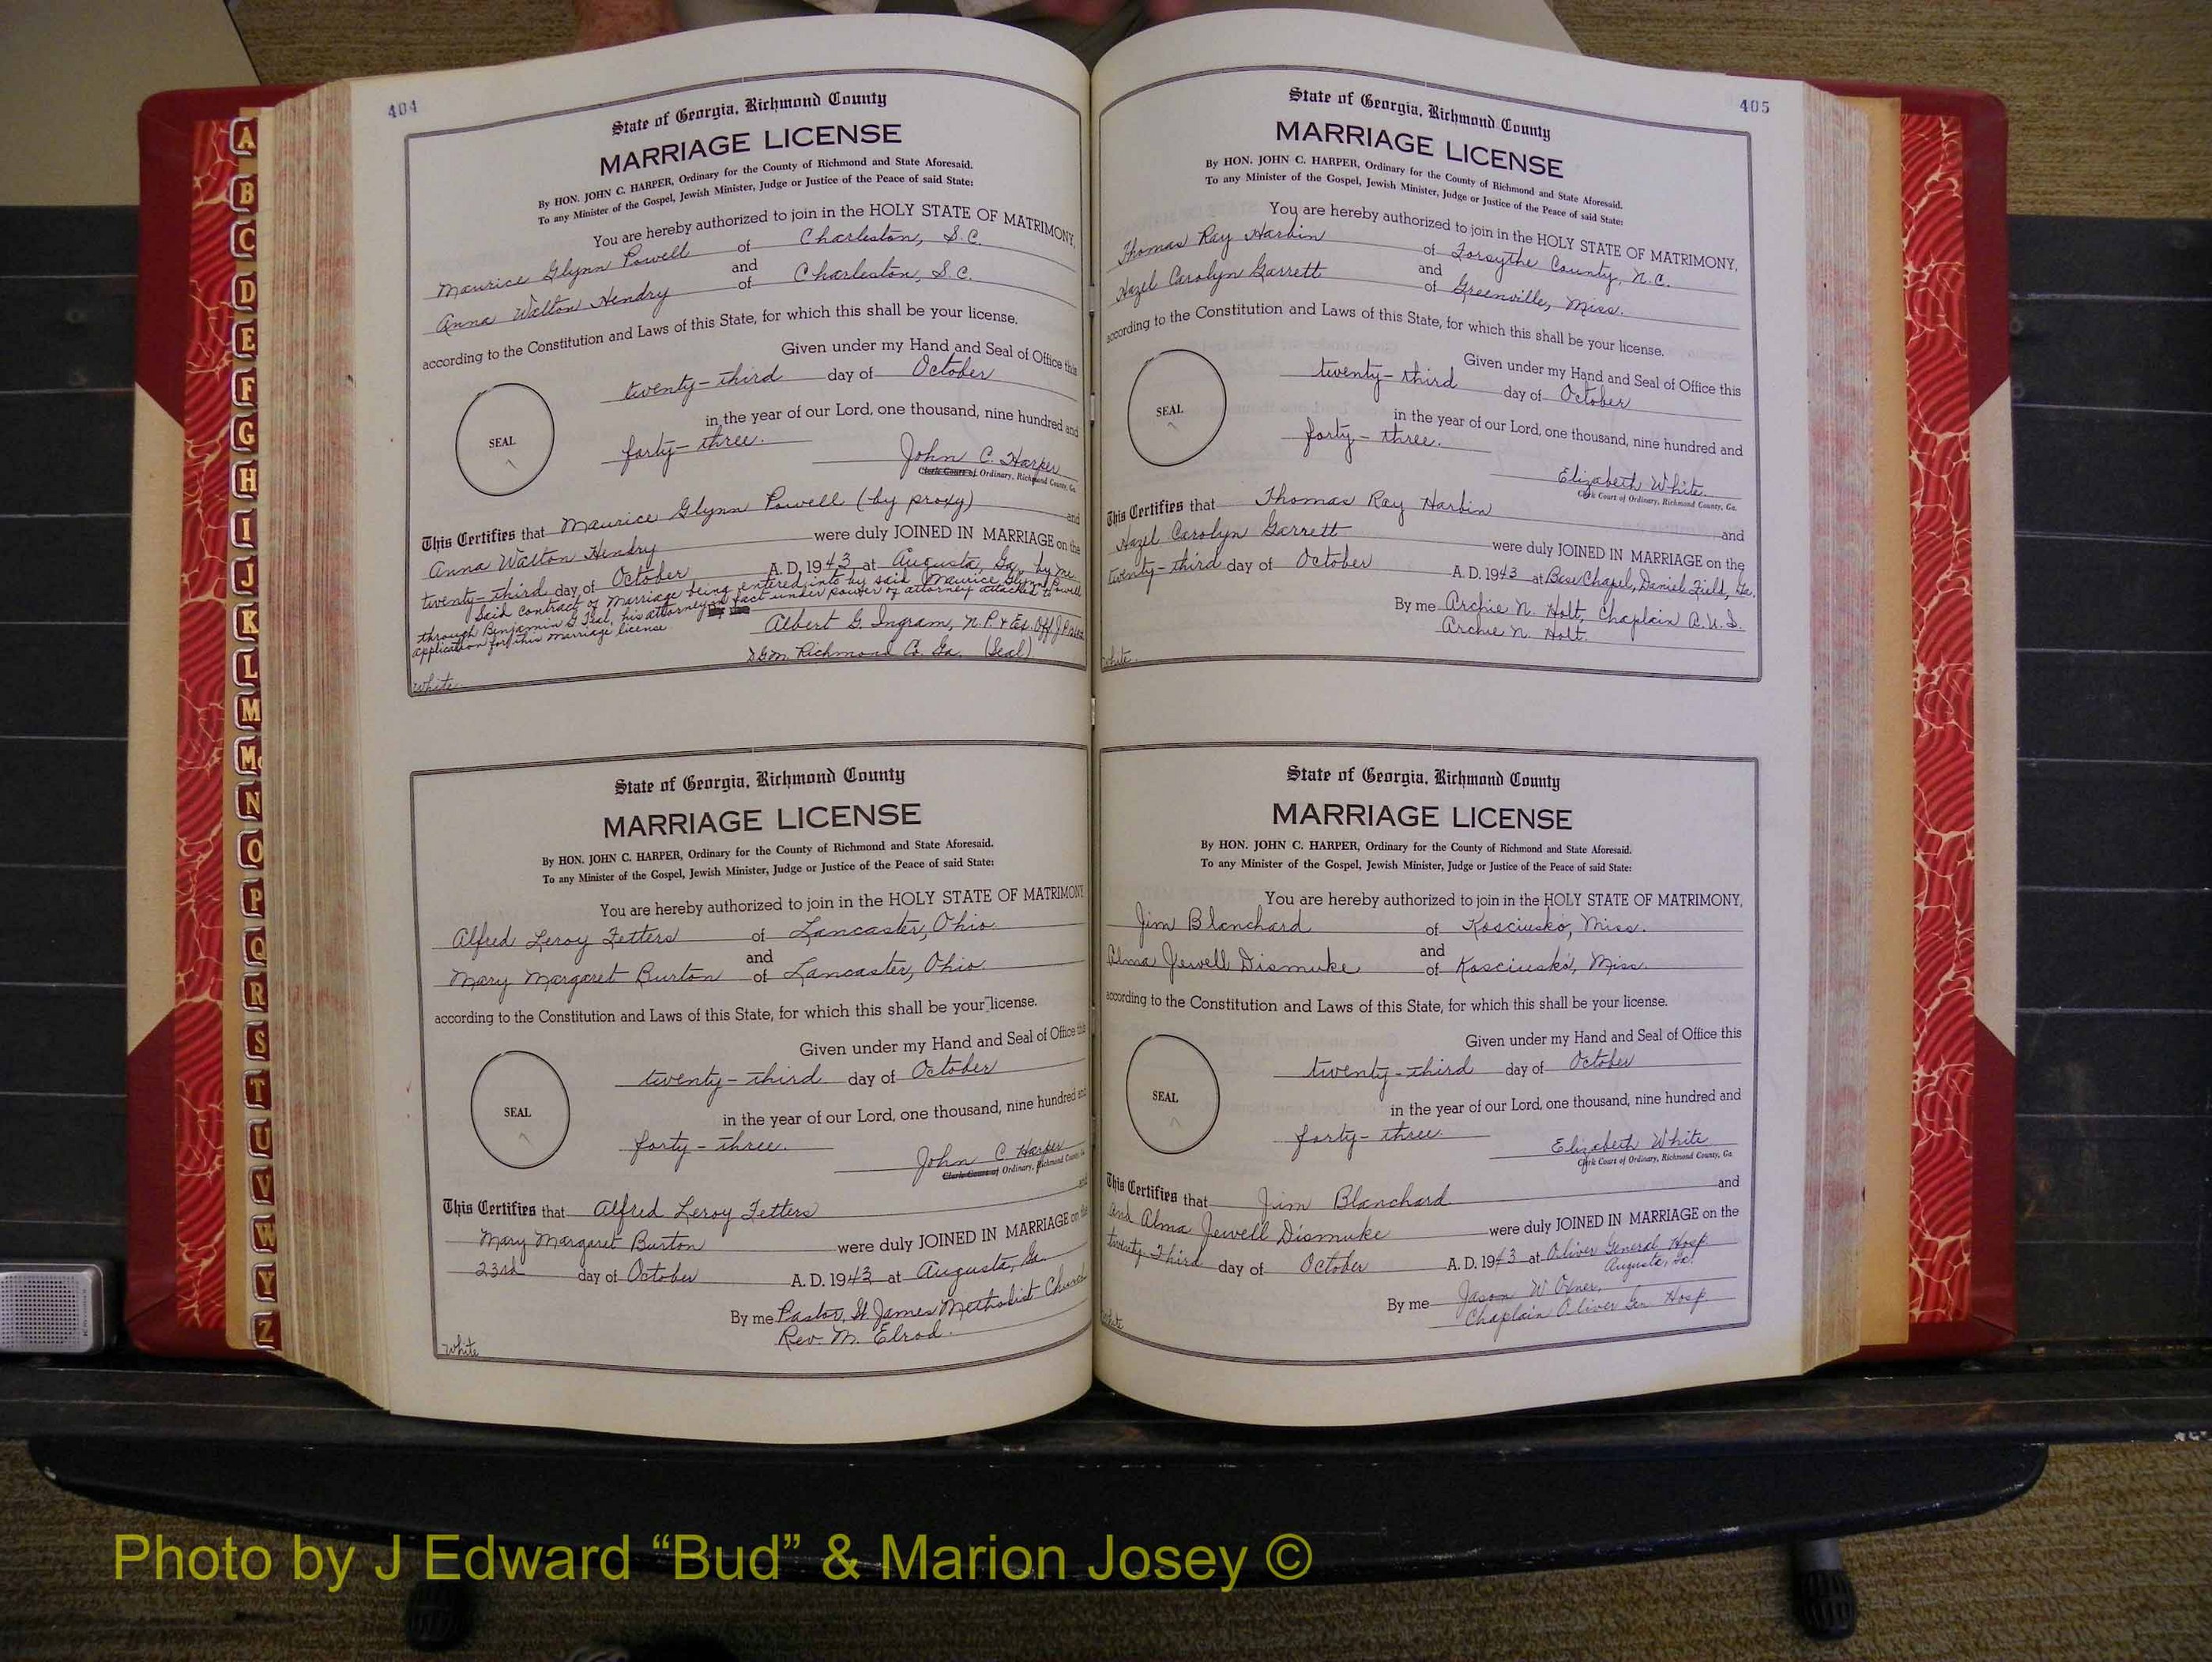 A
B
C
D
E
F
G
H
I
J
K
L
M
Mc
N
O
P
Q
R
S
T
U
V
W
Y
Z
404
State of Georgia, Richmond County
MARRIAGE LICENSE
By HON. JOHN C. HARPER, Ordinary for the County of Richmond and State Aforesaid.
To any Minister of the Gospel, Jewish Minister, Judge or Justice of the Peace of said State:
You are hereby authorized to join in the HOLY STATE OF MATRIMONY,
Maurice Glynn Powell of Charleston, S.C.
and
Anna Walton Hendry of Charleston, S.C.
according to the Constitution and Laws of this State, for which this shall be your license.
Given under my Hand and Seal of Office this
twenty-third day of October
in the year of our Lord, one thousand, nine hundred and
SEAL
forty-three.
John C. Harper
Clerk Court of Ordinary, Richmond County, Ga.
This Certifies that Maurice Glynn Powell (by proxy) and
Anna Walton Hendry were duly JOINED IN MARRIAGE on the
twenty-third day of October A.D. 1943 at Augusta, Ga., by me
Said contract of marriage being entered into by said Maurice Glynn Powell
through Benjamin G. Teal, his attorney in fact under power of attorney attached to
application for this marriage license.
Albert G. Ingram, N.P. & Ex. Off. J.P.
Richmond Co. Ga. (Seal)
White
State of Georgia, Richmond County
MARRIAGE LICENSE
By HON. JOHN C. HARPER, Ordinary for the County of Richmond and State Aforesaid.
To any Minister of the Gospel, Jewish Minister, Judge or Justice of the Peace of said State:
You are hereby authorized to join in the HOLY STATE OF MATRIMONY
Alfred Leroy Fetters of Lancaster, Ohio
and
Mary Margaret Burton of Lancaster, Ohio.
according to the Constitution and Laws of this State, for which this shall be your license.
Given under my Hand and Seal of Office this
twenty-third day of October
in the year of our Lord, one thousand, nine hundred and
SEAL
forty-three.
John C Harper
Clerk Court of Ordinary, Richmond County, Ga
This Certifies that Alfred Leroy Fetters and
Mary Margaret Burton were duly JOINED IN MARRIAGE on the
23rd day of October A. D. 1943 at Augusta, Ga.
By me Pastor, St James Methodist Church
Rev. M. Elrod.
White
405
State of Georgia, Richmond County
MARRIAGE LICENSE
By HON. JOHN C. HARPER, Ordinary for the County of Richmond and State Aforesaid.
To any Minister of the Gospel, Jewish Minister, Judge or Justice of the Peace of said State:
You are hereby authorized to join in the HOLY STATE OF MATRIMONY,
Thomas Ray Harbin of Forsythe County, N.C.
and
Hazel Carolyn Garrett of Greenville, Miss.
according to the Constitution and Laws of this State, for which this shall be your license.
Given under my Hand and Seal of Office this
twenty-third day of October
in the year of our Lord, one thousand, nine hundred and
SEAL
forty-three.
Elizabeth White
Clerk Court of Ordinary, Richmond County, Ga.
This Certifies that Thomas Ray Harbin and
Hazel Carolyn Garrett were duly JOINED IN MARRIAGE on the
twenty-third day of October A. D. 1943 at Base Chapel, Daniel Field, Ga.
By me Archie N. Holt, Chaplain A.U.S.
Archie N. Holt.
White
State of Georgia, Richmond County
MARRIAGE LICENSE
By HON. JOHN C. HARPER, Ordinary for the County of Richmond and State Aforesaid.
To any Minister of the Gospel, Jewish Minister, Judge or Justice of the Peace of said State:
You are hereby authorized to join in the HOLY STATE OF MATRIMONY,
Jim Blanchard of Kosciusko, Miss.
and
Alma Jewell Dismuke of Kosciusko, Miss.
according to the Constitution and Laws of this State, for which this shall be your license.
Given under my Hand and Seal of Office this
twenty-third day of October
in the year of our Lord, one thousand, nine hundred and
SEAL
forty-three.
Elizabeth White
Clerk Court of Ordinary, Richmond County, Ga.
This Certifies that Jim Blanchard and
and Alma Jewell Dismuke were duly JOINED IN MARRIAGE on the
twenty Third day of October A. D. 1943 at Oliver General Hosp
Augusta, Ga.
By me Jason W Oxner,
Chaplain Oliver Gen Hosp
White
Photo by J Edward “Bud” & Marion Josey ©